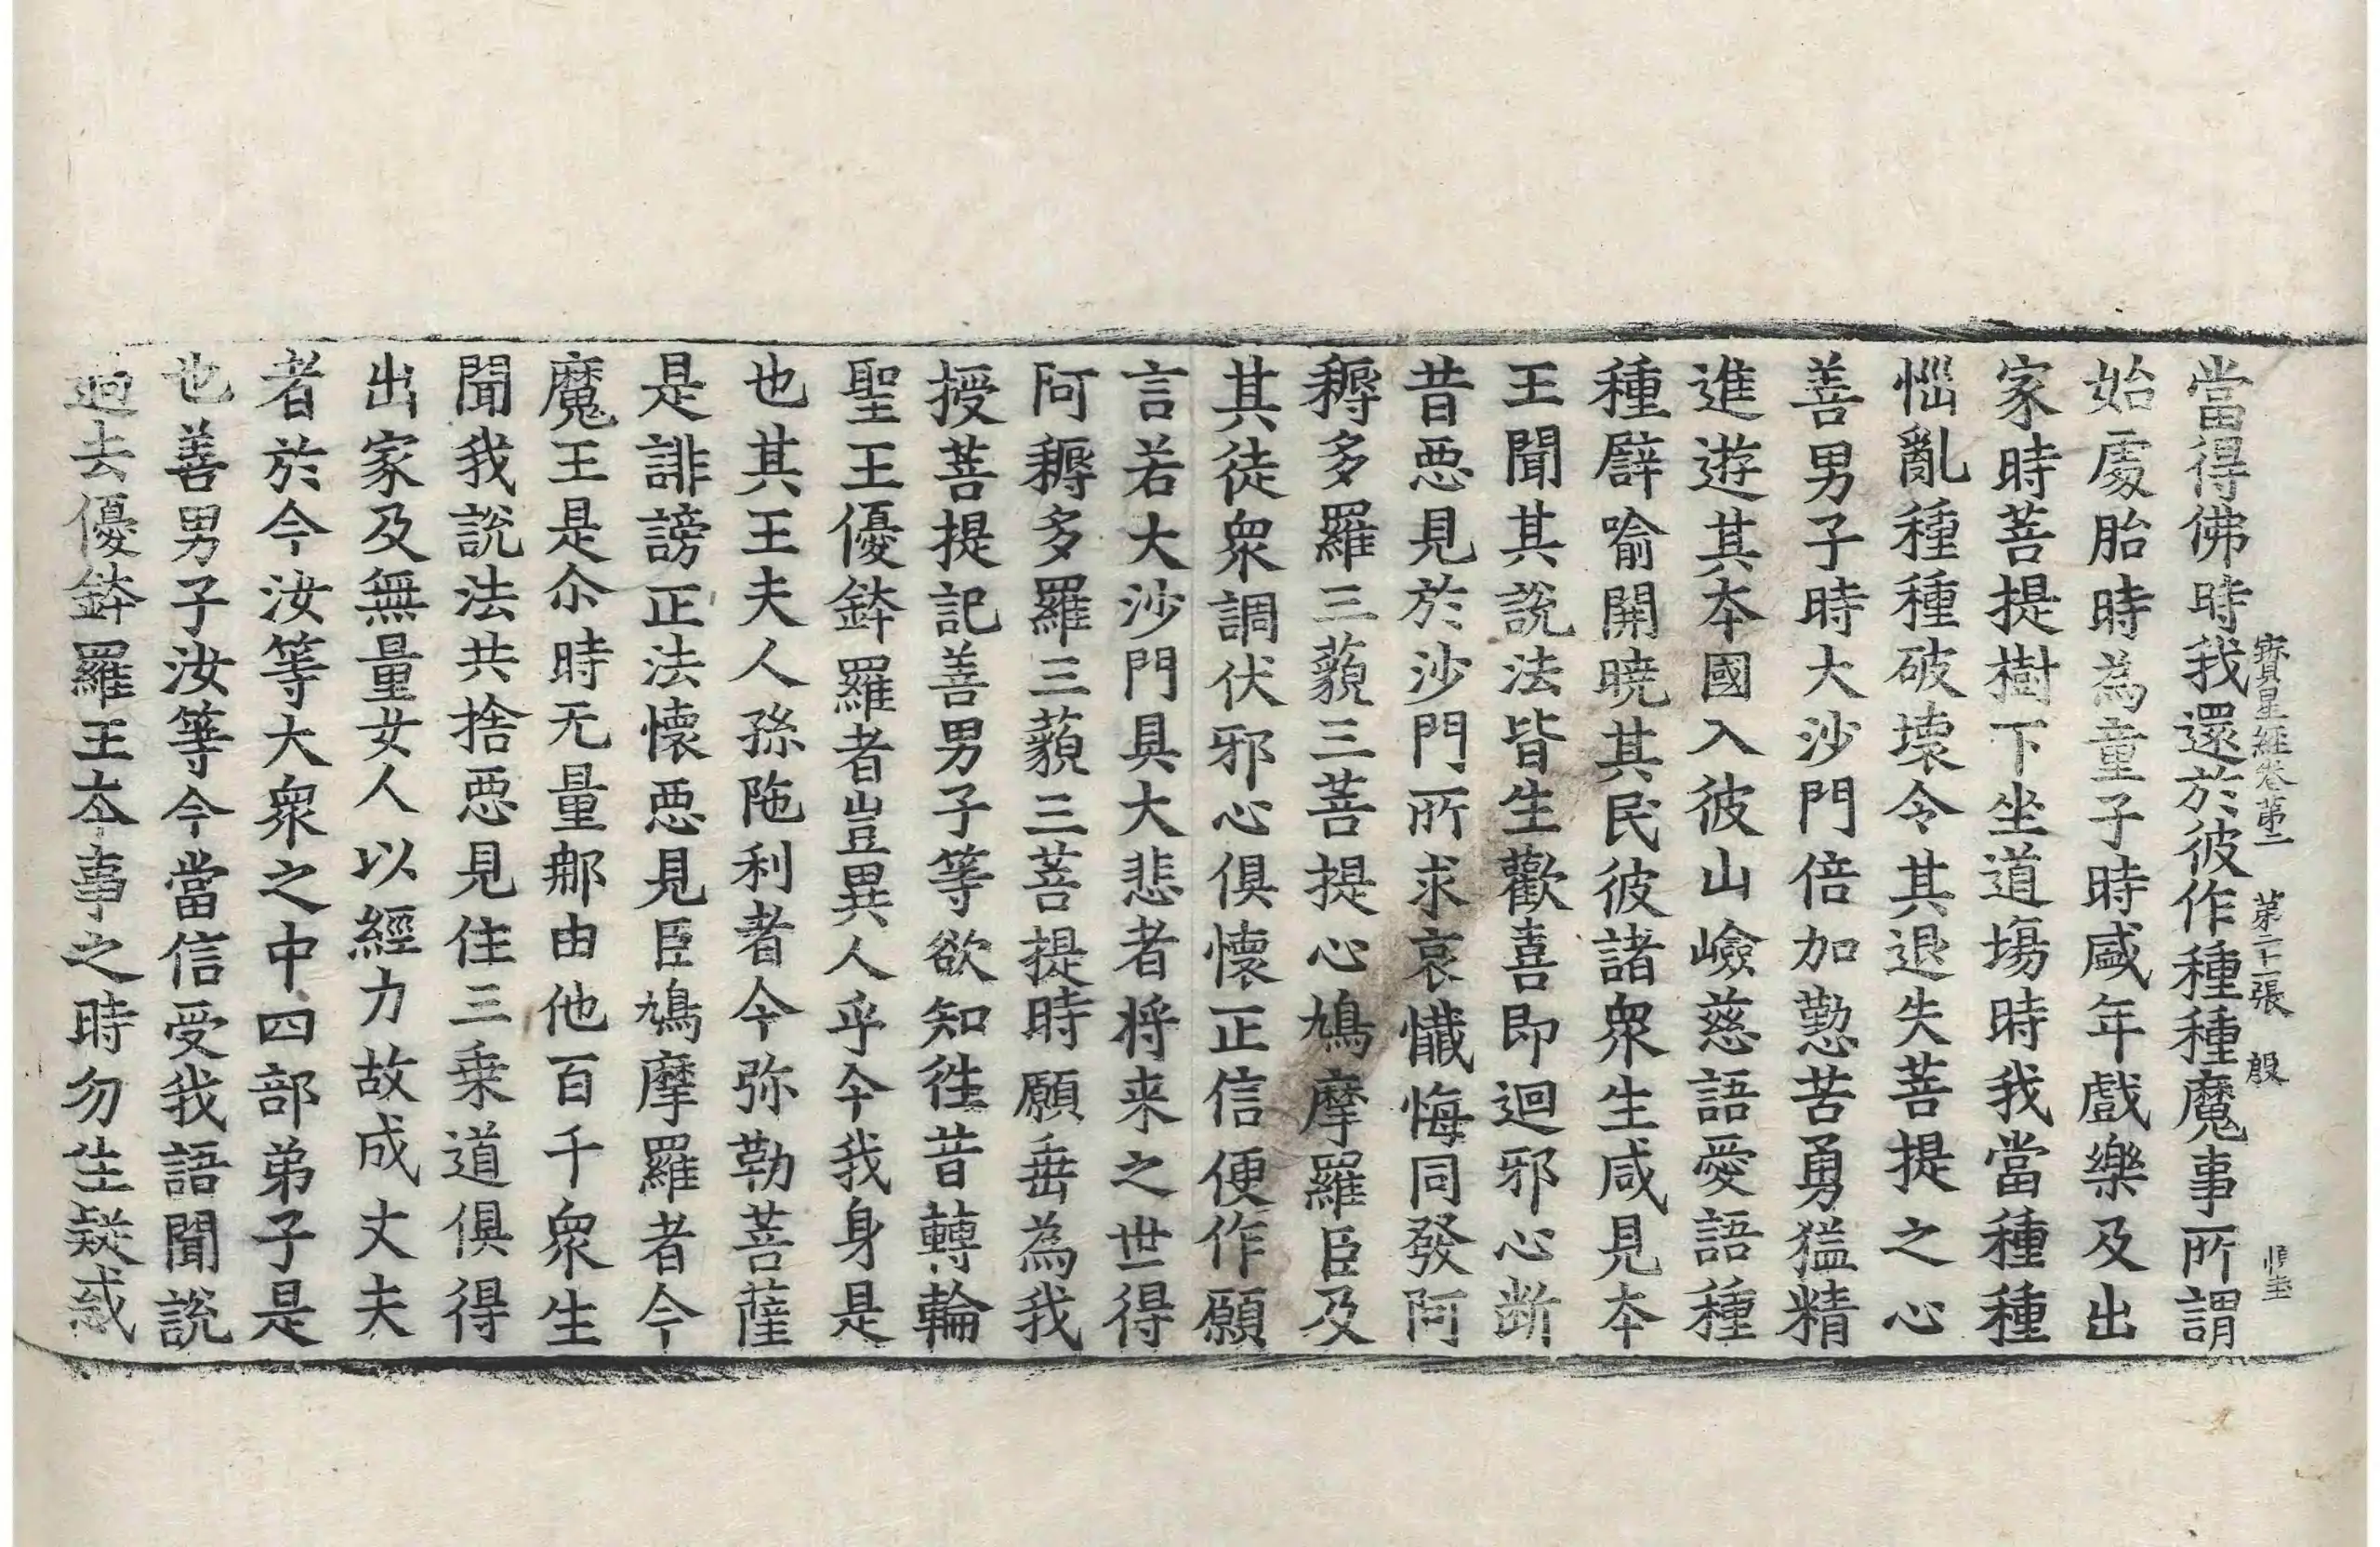 當得佛時我還於彼作種種魔事所謂
寳星經卷第二 第二十一張 殷
始䖏胎時為童子時盛年戲樂及出
家時菩提樹下坐道場時我當種種
惱亂種種破壞令其退失菩提之心
善男子時大沙門倍加懃苦勇猛精
進遊其本國入彼山嶮慈語愛語種
種譬喻開曉其民彼諸衆生咸見本
王聞其說法皆生歡喜即迴邪心断
昔惡見於沙門所求哀懺悔同發阿
耨多羅三藐三菩提心鳩摩羅臣及
其徒衆調伏邪心俱懷正信便作願
言若大沙門具大悲者将来之世得
阿耨多羅三藐三菩提時願垂為我
授菩提記善男子等欲知徃昔轉輪
聖王優鉢羅者豈異人乎今我身是
也其王夫人孫陁利者今弥勒菩薩
是誹謗正法懷惡見臣鳩摩羅者今
魔王是尒時无量那由他百千衆生
聞我說法共捨惡見住三乗道俱得
出家及無量女人以經力故成丈夫
者於今汝等大衆之中四部弟子是
也善男子汝等今當信受我語聞說
過去優鉢羅王本事之時勿生疑惑